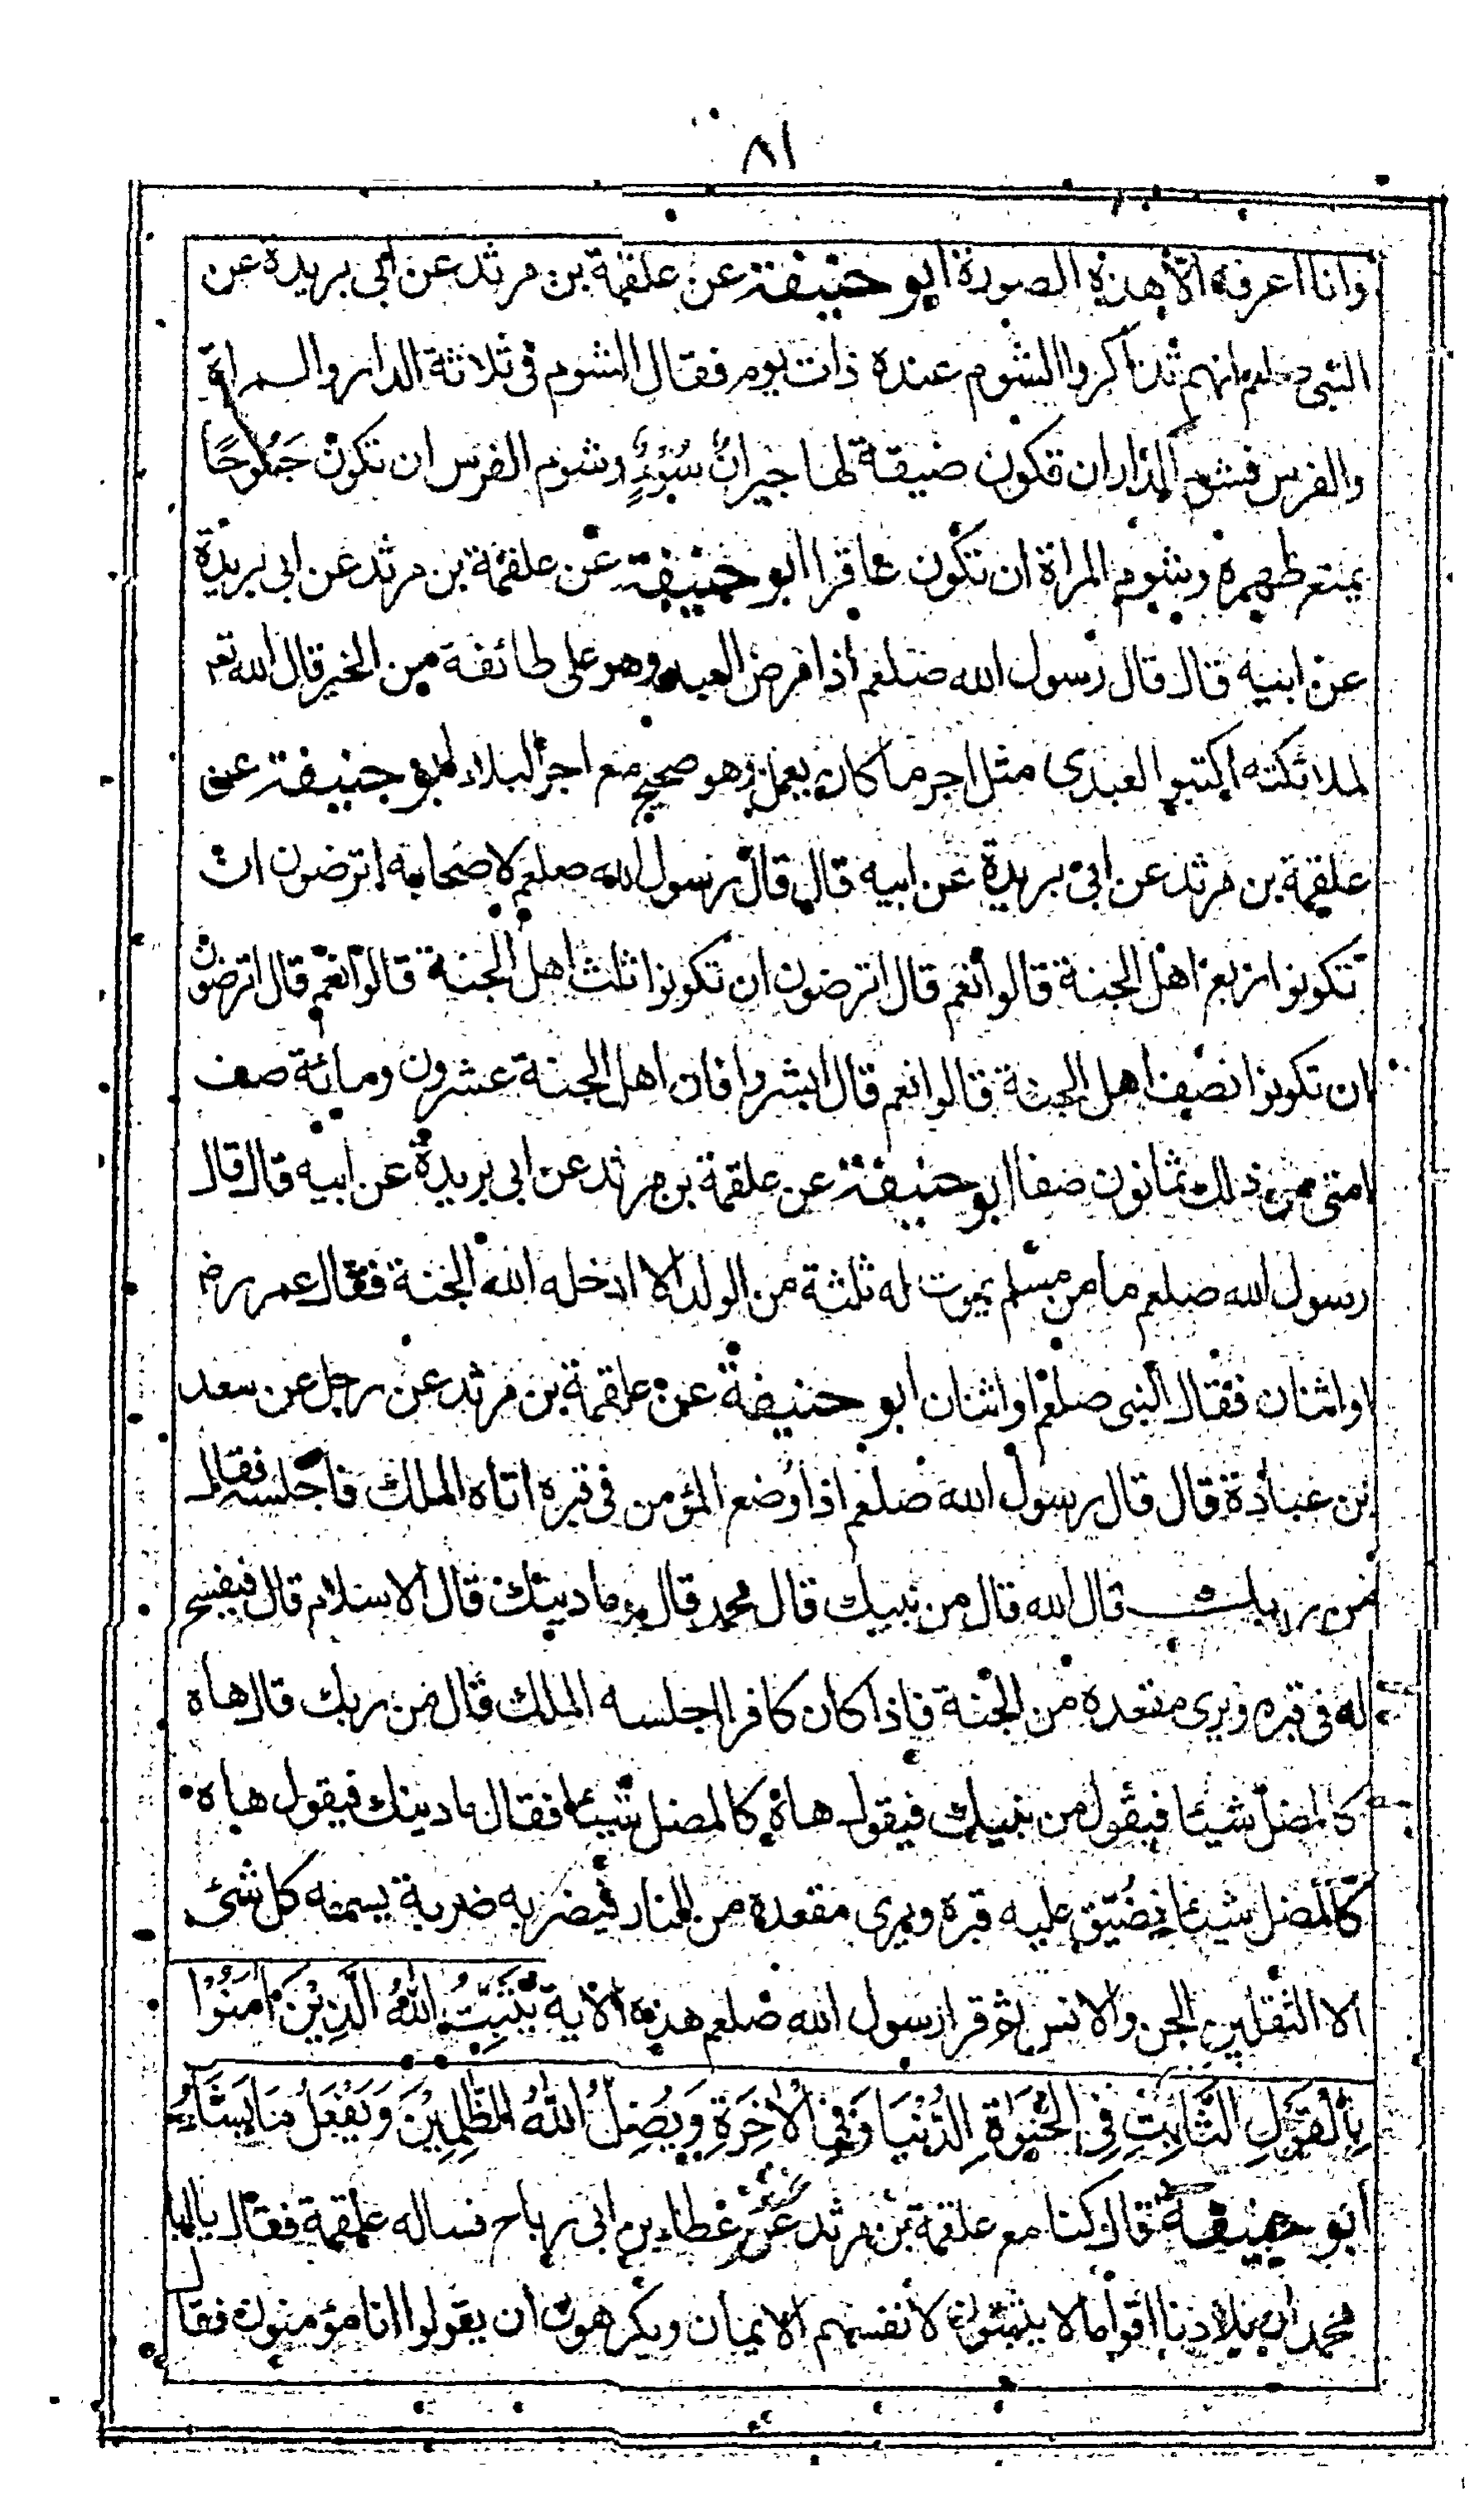 ٨١
وانا اعرفه الا هذه الصورة ابو حنيفة عن علقمة بن مرثد عن ابي بريدة عن
النبي صلعم انهم تذاكروا الشوم عنده ذات يوم فقال الشوم في ثلاثة الدار والمراة
والفرس فشوم الدار ان تكون ضيقة لها جيران سوء وشوم الفرس ان تكون جموحا
يمنع ظهره وشوم المراة ان تكون عاقرا ابو حنيفة عن علقمة بن مرثد عن ابي بريدة
عن ابيه قال قال رسول الله صلعم اذا مرض العبد وهو على طائفة من الخير قال الله تع
لملائكته اكتبوا لعبدي مثل اجر ما كان يعمل وهو صحيح مع اجر البلاء ابو حنيفة عن
علقمة بن مرثد عن ابي بريدة عن ابيه قال قال رسول الله صلعم لاصحابه اترضون ان
تكونوا اربع اهل الجنة قالوا نعم قال اترضون ان تكونوا ثلث اهل الجنة قالوا نعم قال اترضون
ان تكونوا نصف اهل الجنة قالوا نعم قال ابشروا فان اهل الجنة عشرون ومائة صف
امتي من ذلك ثمانون صفا ابو حنيفة عن علقمة بن مرثد عن ابي بريدة عن ابيه قال قال
رسول الله صلعم ما من مسلم يموت له ثلثة من الولد الا ادخله الله الجنة فقال عمر رض
او اثنان فقال النبي صلعم او اثنان ابو حنيفة عن علقمة بن مرثد عن رجل عن سعد
بن عبادة قال قال رسول الله صلعم اذا وضع المؤمن في قبره اتاه الملك فاجلسه فقال
من ربك قال الله قال من نبيك قال محمد قال وما دينك قال الاسلام قال فيفسح
له في قبره ويرى مقعده من الجنة فاذا كان كافرا اجلسه الملك قال من ربك قال هاه
كالمضل شيئا فيقول من نبيك فيقول هاه كالمضل شيئا فقال ما دينك فيقول هاه
كالمضل شيئا فيضيق عليه قبره ويرى مقعده من النار فيضربه ضربة يسمعه كل شئ
الا الثقلين الجن والانس ثم قرا رسول الله صلعم هذه الاية يُثَبِّتُ اللهُ الَّذِيْنَ اٰمَنُوْا
بِالْقَوْلِ الثَّابِتِ فِي الْحَيٰوةِ الدُّنْيَا وَفِي الْاٰخِرَةِ وَيُضِلُّ اللهُ الظّٰلِمِيْنَ وَيَفْعَلُ اللهُ مَا يَشَاءُ
ابو حنيفة قال كنا مع علقمة بن مرثد عن عطاء بن ابي رباح فساله علقمة فقال يا ابا
محمد ان ببلادنا اقواما لا يثبتون لانفسهم الايمان ويكرهون ان يقولوا انا مؤمنون فقا